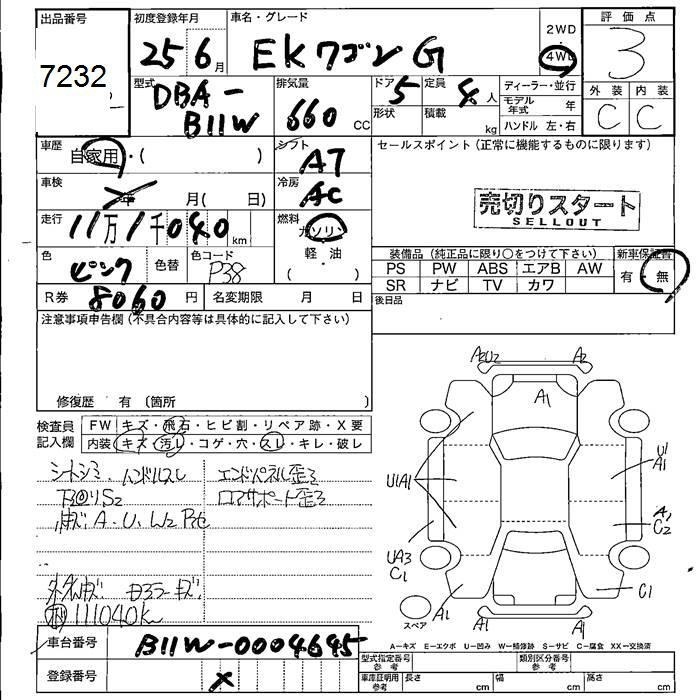 出品番号 初度登録年月 車名・グレード 2WD 評価点
7232 25 6月 EKワゴン G 4WD 3
型式 排気量 ドア 定員 ディーラー・並行 外装 内装
DBA- 660 CC 5 4人 モデル年式 年 C C
B11W 形状 積載 kg ハンドル 左・右
車歴 自家用・( ) シフト A7 セールスポイント(正常に機能するものに限ります)
車検 年 月( 日) 冷房 AC
売切りスタート
SELLOUT
走行 11万1千040km 燃料 ガソリン
軽油
( )
色 ピンク 色替 色コード P38
装備品(純正品に限り○をつけて下さい) 新車保証書
PS PW ABS エアB AW 有・無
SR ナビ TV カワ
R券 8060円 名変期限 月 日 後日品
注意事項申告欄(不具合内容等は具体的に記入して下さい)
修復歴 有 (箇所 )
検査員 FW キズ・飛石・ヒビ割・リペア跡・X要
記入欄 内装 キズ・汚レ・コゲ・穴・スレ・キレ・破レ
シートシミ、ハンドルスレ エンドパネル歪ミ
下回りS2 コアサポート歪ミ
A.U.W2
111040km
A2U2 A2
A1
U1A1
U1
A1
A1
C2
UA3
C1
A1 C1
A1 A1
スペア
A−キズ E−エクボ U−凹み W−補修跡 S−サビ C−腐食 XX−交換済
車台番号 B11W-0004645
登録番号 X
型式指定番号 参考 類別区分番号 参考
車庫証明用 参考 長さ cm 幅 cm 高さ cm